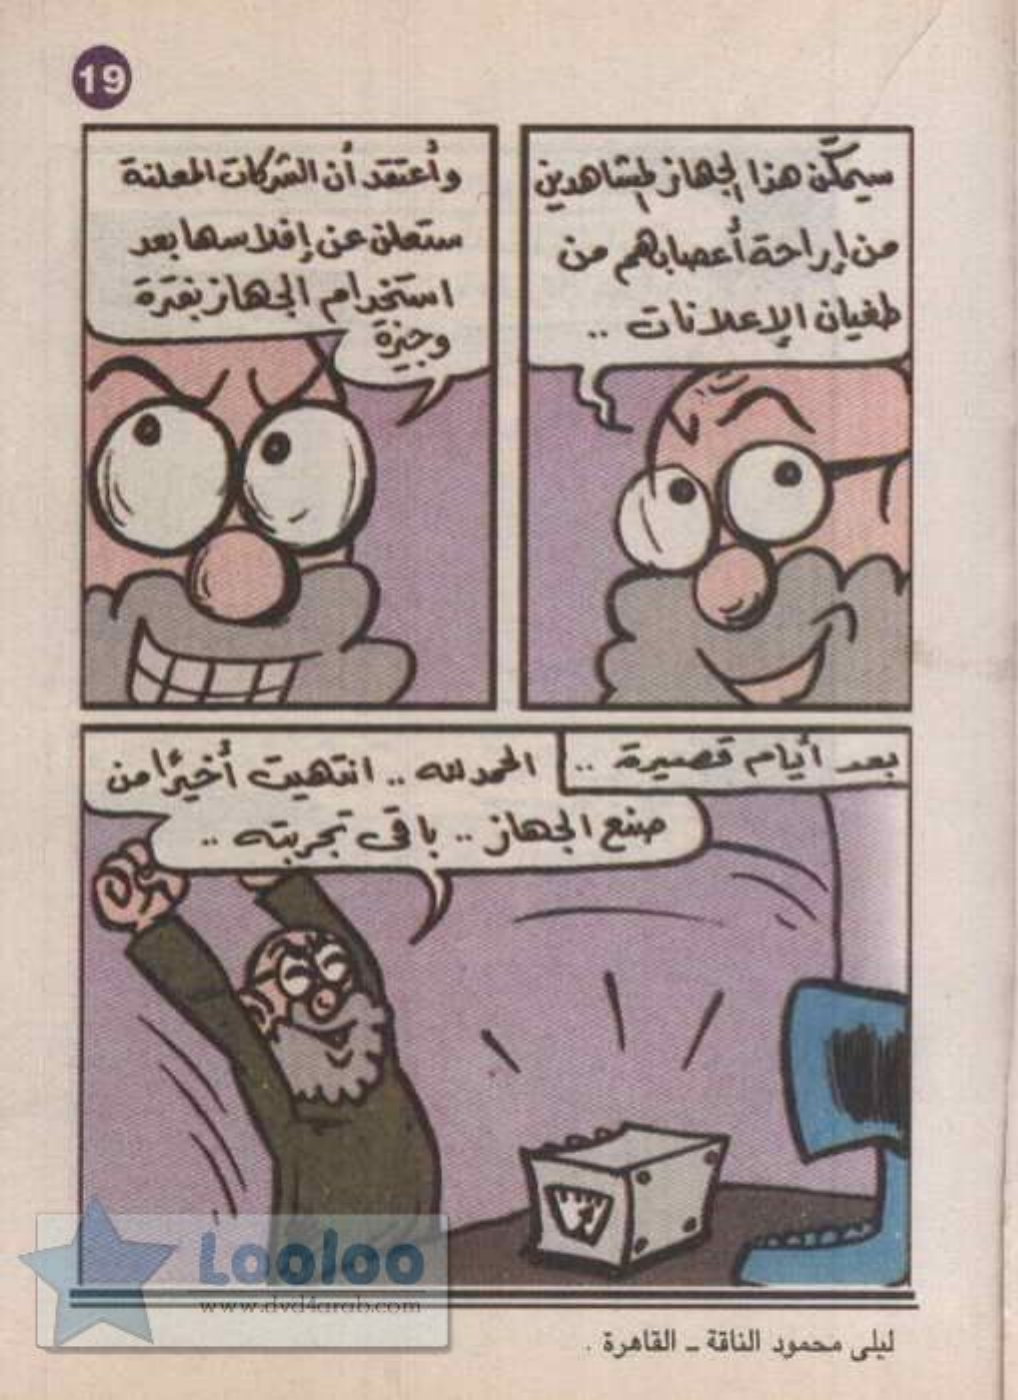 19
سيمكّن هذا الجهاز المشاهدين
من إراحة أعصابهم من
طغيان الإعلانات ..
وأعتقد أن الشركات المعلنة
ستعلن عن إفلاسها بعد
استخدام الجهاز بفترة
وجيزة
بعد أيام قصيرة ..
الحمد لله .. انتهيت أخيرًا من
صنع الجهاز .. باقى تجربته ..
Looloo
www.dvd4arab.com
ليلى محمود الناقة ــ القاهرة .